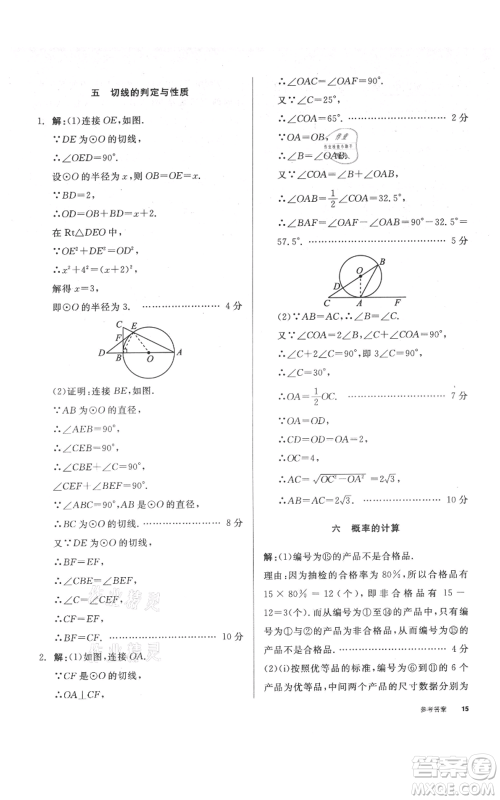 五 切线的判定与性质
1. 解:(1)连接 OE,如图.
∵DE 为⊙O 的切线,
∴∠OED=90°.
设⊙O 的半径为 x,
∵BD=2,
∴OD=x+2.
在 Rt△DEO 中,
∵OE²+DE²=OD²,
∴x²+4²=(x+2)²,
解得 x=3,
即⊙O 的半径为 3. ……………… 4 分
C
E
D
B
O
A
(2)证明:连接 BE,如图.
∵AB 为⊙O 的直径,
∴∠AEB=90°,
∴∠CEB=90°.
∵∠ABC=90°,
∴BC 为⊙O 的切线. ……………… 8 分
又∵DE 为⊙O 的切线,
∴BF=EF,
∴∠FEB=∠FBE.
∵∠CEF+∠FEB=90°,
∠C+∠CBE=90°,
∴∠C=∠CEF,
∴CF=EF,
∴BF=CF. ……………… 10 分
2. 解:(1)如图,连接 OA.
∵CF 为⊙O 的切线,
∴OA⊥CF,
∴∠OAC=∠OAF=90°.
又∵∠C=25°,
∴∠COA=65°. ……………… 2 分
∵OA=OB,
∴∠B=∠OAB.
又∵∠COA=∠B+∠OAB,
∴∠OAB=1/2∠COA=32.5°,
∴∠BAF=∠OAF−∠OAB=90°−32.5°=
57.5°. ……………… 5 分
B
O
D
C
A
F
(2)∵AB=AC,∴∠B=∠C.
又∵∠COA=2∠B,∴∠COA=2∠C.
∵∠COA+∠C=90°,∴3∠C=90°,
∴∠C=30°,
∴OA=1/2OC. ……………… 7 分
∵OA=OD,
∴CD=OD=OA=2,
∴OC=4,
∴AC=√(OC²−OA²)=2√3,
∴AB=AC=2√3. ……………… 10 分
六 概率的计算
解:(1)编号为⑮的产品不是合格品.
理由:因为抽检的合格率为 80%,所以合格品有
15×80%=12(个),即非合格品有 15−
12=3(个).而从编号①至编号⑮对应的产品中,
只有①与②对应的产品为非合格品,从而编号
为⑮的产品不是合格品. ……………… 4 分
(2)(i)按照优等品的标准,从编号⑥到编号⑪的 6 个
产品为优等品,中间两个产品的尺寸数据分别为
参考答案 15